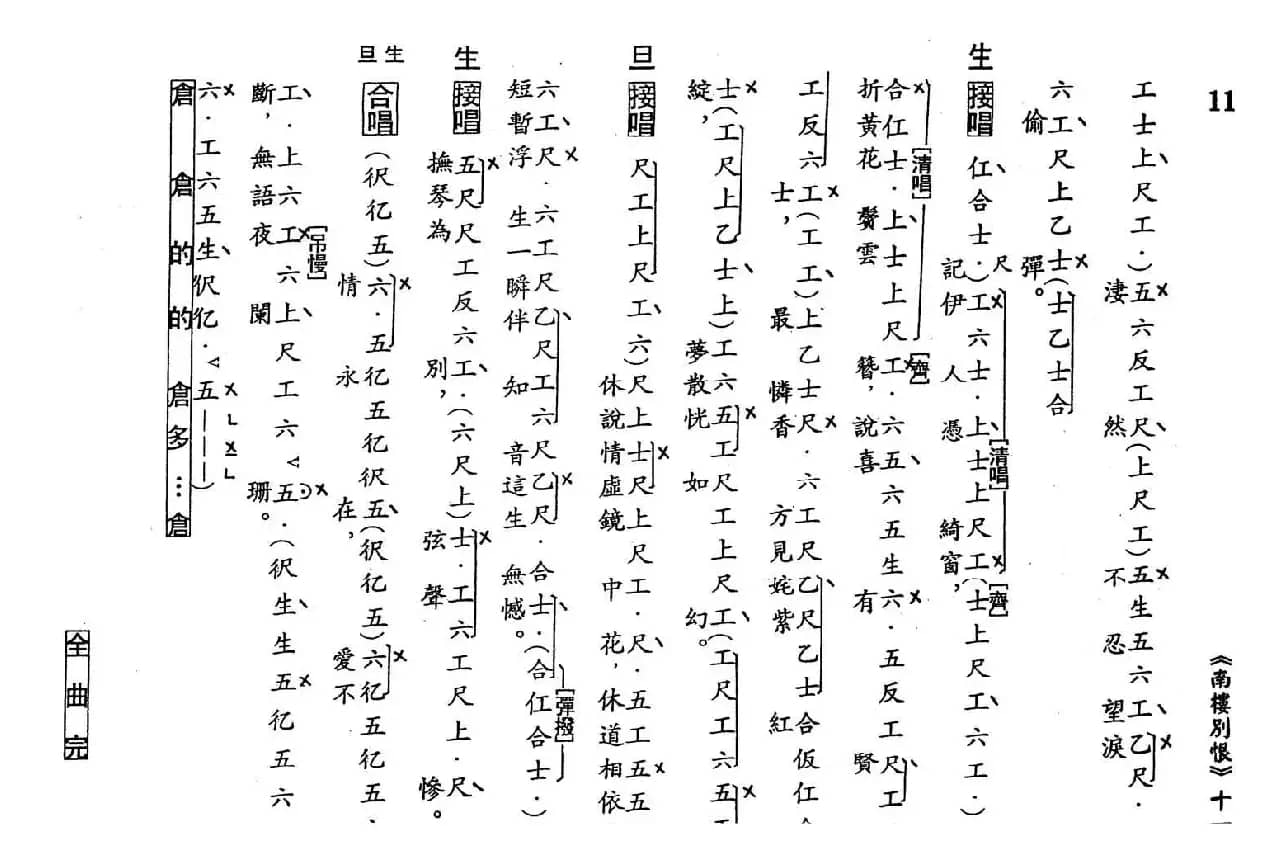 11
《南樓別恨》十一
工士上尺工.)五六反工尺(上尺工)五生五六工乙尺.
淒然不忍望淚
六工尺上乙士(士乙士合
偷彈。
生 接唱 仜合士.)尺工六士.上士上尺工(士上尺工六工.)
記伊人憑綺窗,
[清唱] [齊]
合仜士.上士上尺工.六五六五生六.五反工尺工
折黃花鬢雲簪,說喜有賢
[清唱] [齊]
工反六工(工工)上乙士尺.六工尺乙尺乙士合仮仜合
士,最憐香方見姹紫紅
士(工尺上乙士上)工六五工尺工上尺工(工尺工六五工
綻,夢散恍如幻。
旦 接唱 尺工上尺工六)尺上士尺上尺工.尺.五工五五
休說情虛鏡中花,休道相依
六工尺.六工尺乙尺工六尺乙尺.合士.(合仜合士.)
短暫浮生一瞬伴知音這生無憾。
[彈撥]
生 接唱 五尺尺工反六工.(六尺上)士.工六工尺上.尺
撫琴為別,弦聲慘。
生旦 合唱 (伬亿五)六.五亿五亿伬五(伬亿五)六亿五亿五.
情永在,愛不
工.上六工六上尺工六五.(伬生生五亿五六
斷,無語夜闌珊。
[吊慢]
六.工六五生伬亿.五———)
倉倉的的倉多…倉
全曲完